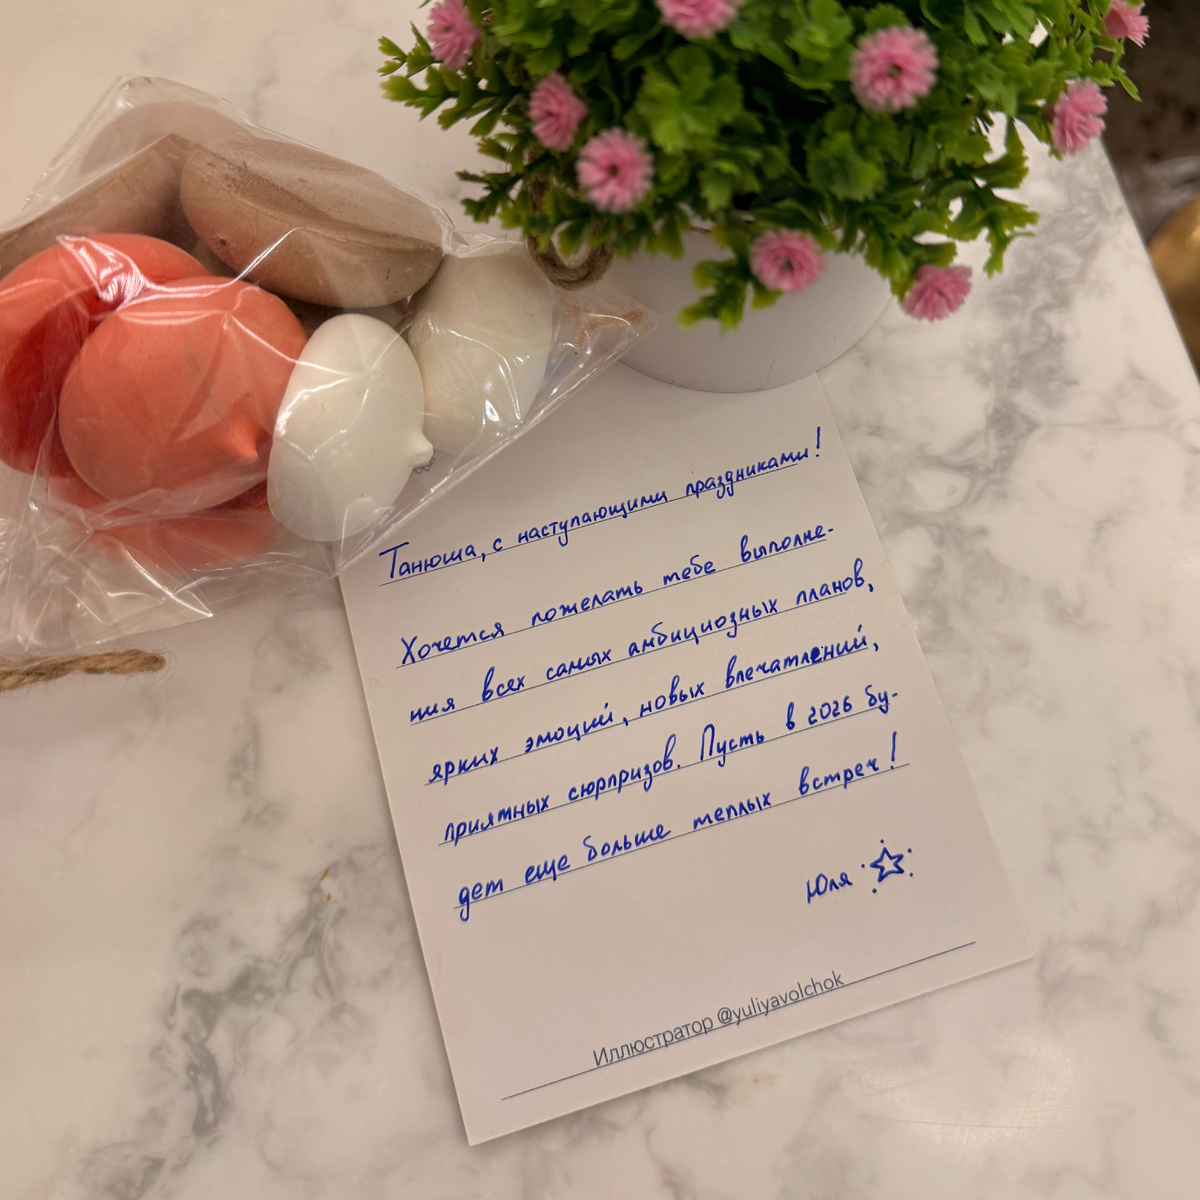 Танюша, с наступающими праздниками!
Хочется пожелать тебе выполне-
ния всех самых амбициозных планов,
ярких эмоций, новых впечатлений,
приятных сюрпризов. Пусть в 2026 бу-
дет еще больше теплых встреч!
Юля
Иллюстратор @yuliyavolchok